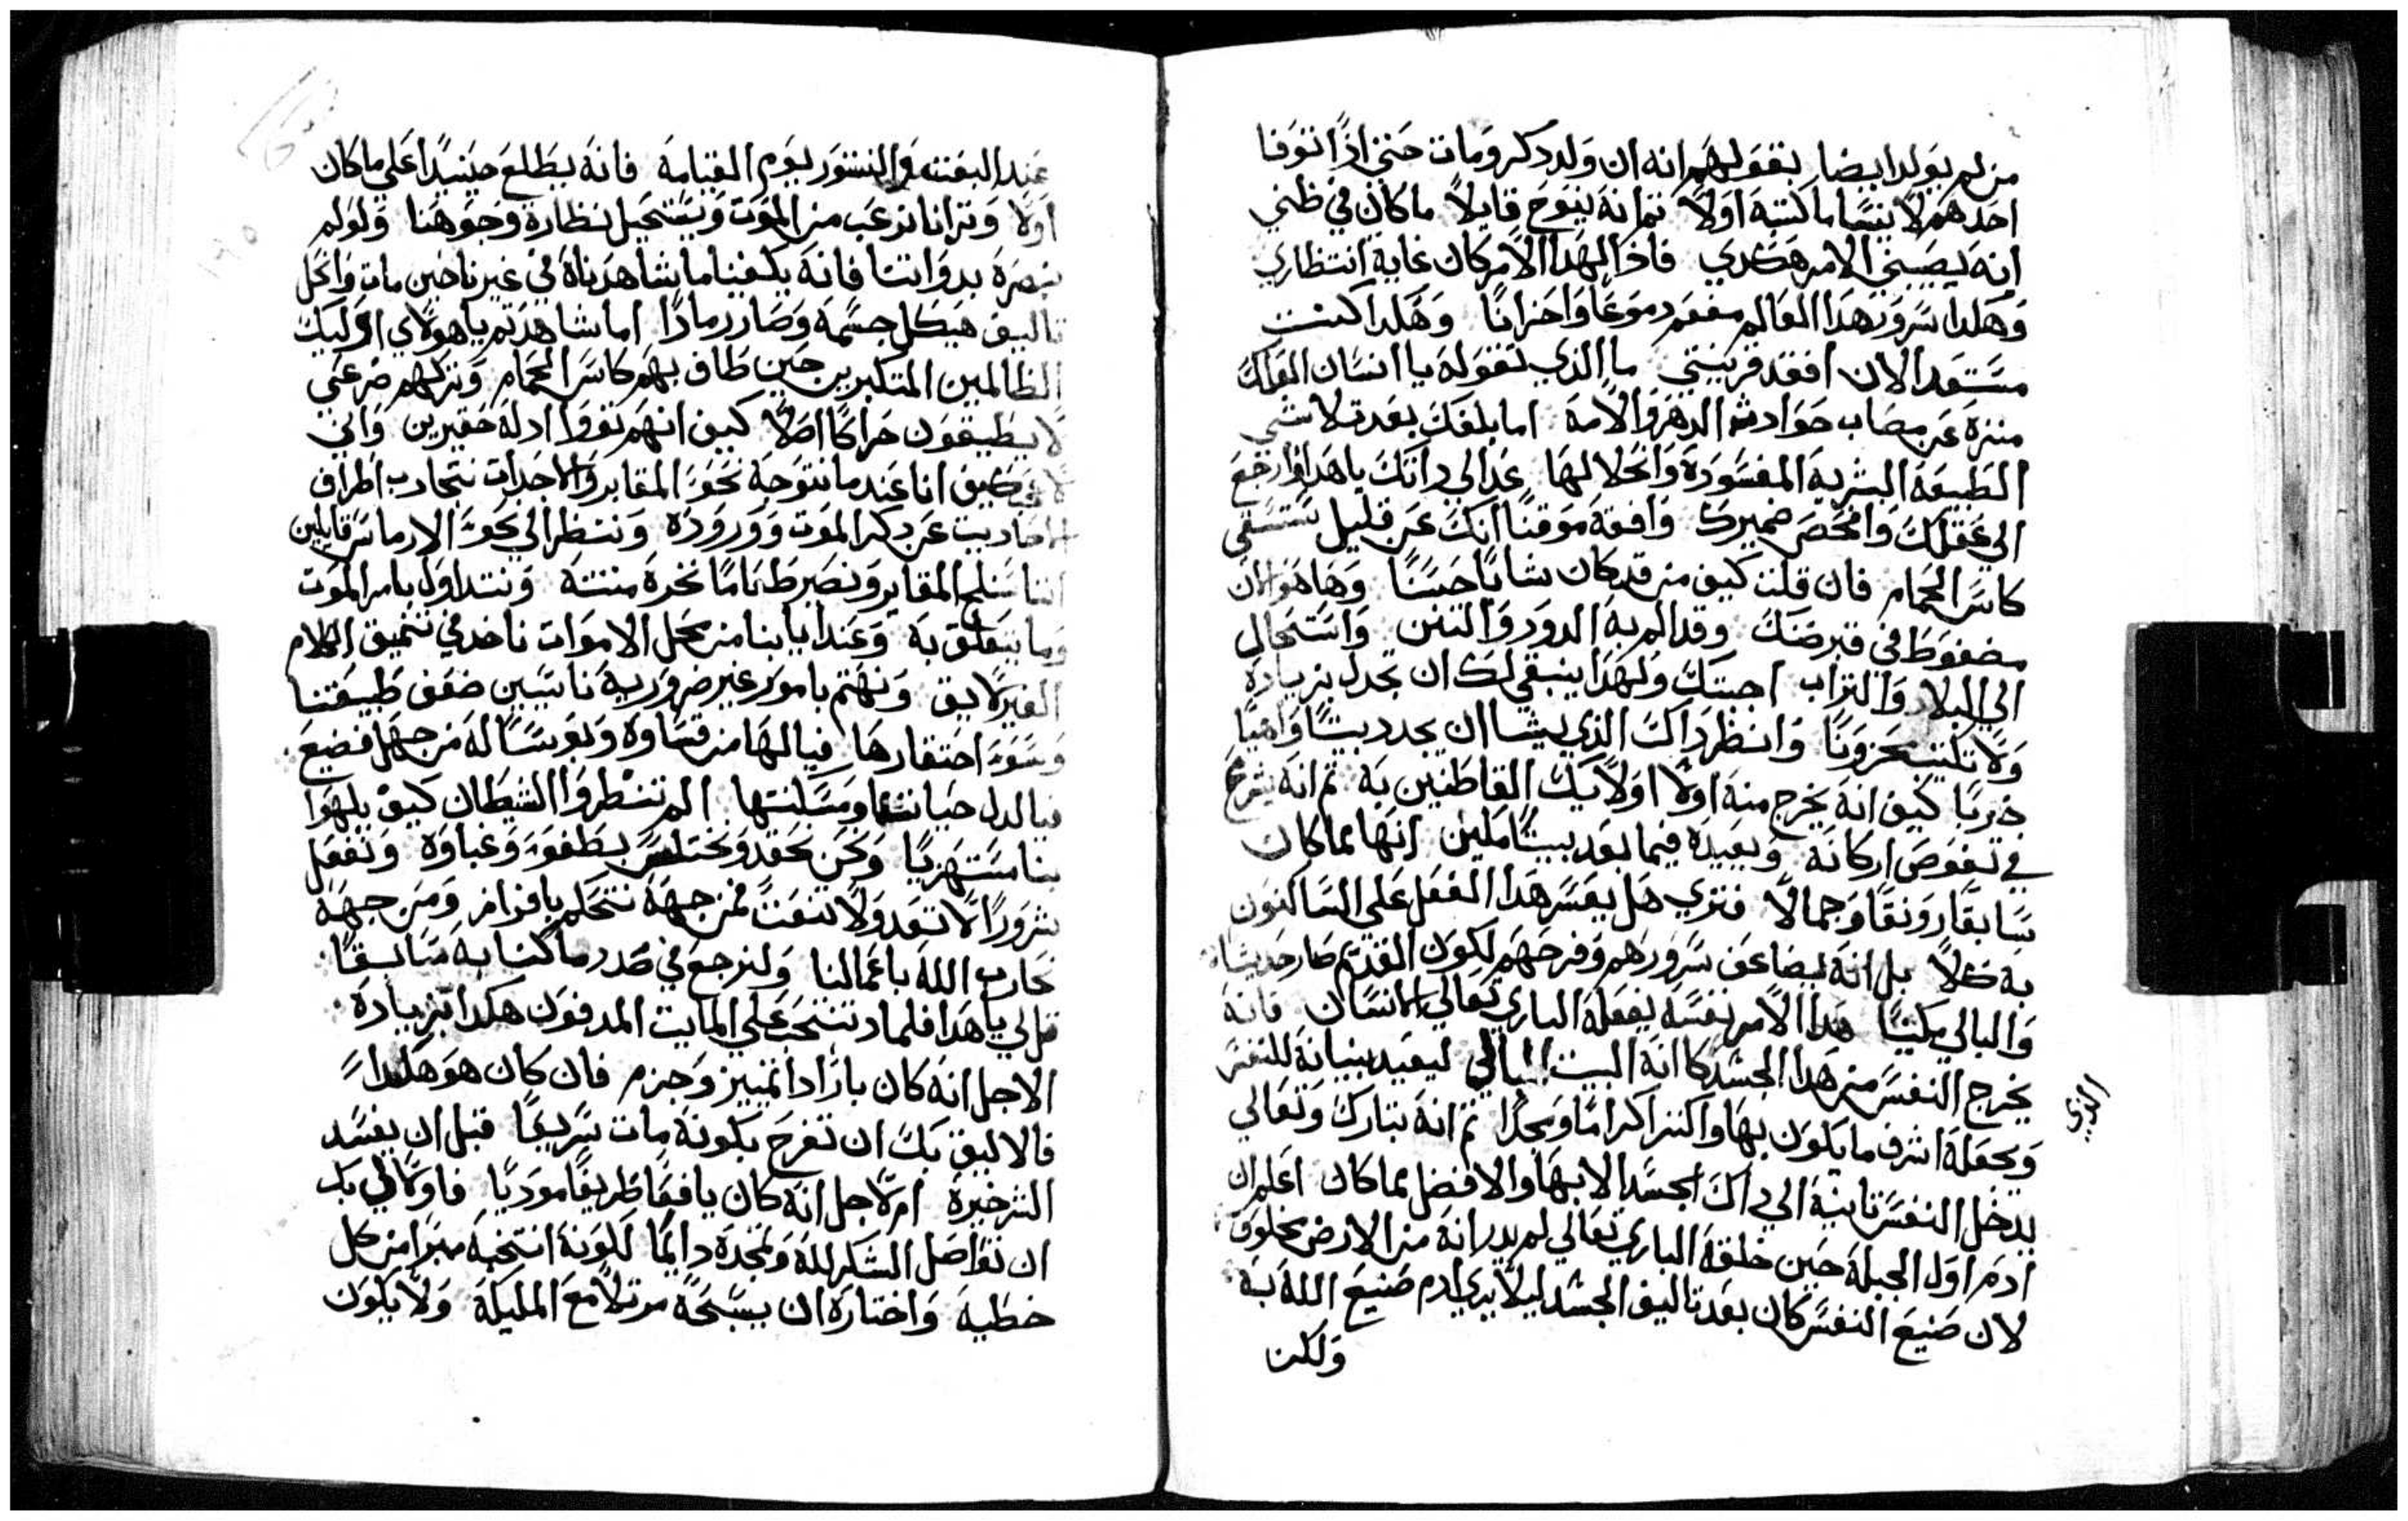 من لم يولد ايضا بقولهم انه ان ولد دكر ومات حتي اذا توفا
احدهم لا ينسا ما كتبه اولا ثم انه ينوح قايلا ما كان في ظني
انه يصيبني الامر هكدي فاذا لهدا الامر كان غاية انتظاري
وهكدا سرور هدا العالم مفعم دموعا واحزانا وهكدا كنت
مستعد الان افقد قرينتي ما الذي تقوله يا انسان المولك
منزه عن مصاب حوادث الدهر والامه اما بلغك بعد تلاشي
الطبيعة البشرية المفسوده وانحلالها عد الي داتك يا هدا وارجع
الي عقلك وافحص ضميرك وافقه موقنا انك عن قليل تستقي
كاس الحمام فان قلت كيف من قد كان شابا حسنا وها هو الان
مضغوط في قبر ضنك وقد الم به الدود والنتن واستحال
الي البلاء والتراب اجبتك ولهدا ينبغي لك ان تجدل بزياده
ولا تلبث محزونا وانظر داك الذي يشا ان يجدد بيتا واهيا
خربا كيف انه يخرج منه اولا اولايك القاطنين به ثم انه يشرع
في تقوض اركانه ويعيده فيما بعد بيتا مكين ابها مما كان
سابقا رونقا وجمالا فتري هل يعسر هدا الفعل علي الساكنون
به كلا بل انه يضاعف سرورهم وفرحهم لكون القديم صار حديثا
والبالي مكينا هدا الامر نفسه يفعله الباري تعالي بالانسان فانه
يخرج النفس من هدا الجسد كانه البيت البالي ليعيد بنيانه للنفس
الذي
ويجعله اشرف ما يكون بها واكتر اكراما ومجدا ثم انه تبارك وتعالي
يدخل النفس تانية الي داك الجسد الابها والافضل مما كان اعلم ان
ادم اول الجبلة حين خلقه الباري تعالي لم يدر انه من الارض مخلوق
لان صنيع النفس كان بعد تاليف الجسد ليلا يري ادم صنيع الله به
ولكن
عند البعث والنشور يوم القيامة فانه يطلع حينيدا علي ما كان
اولا وترانا نرعب من الموت ويستحيل نظارة وجوهنا ولو لم
نبصره بدواتنا فانه يكفينا ما شاهدناه في غيرنا حين مات وانحل
تاليف هيكل جسمه وصار رمادا اما شاهدتم يا هولاي اوليك
الظالمين المتكبرين حين طاف بهم كاس الحمام وتركهم صرعي
لا يطيقون حراكا اصلا كيف انهم تووا ادلة حقيرين واني
كيف انا عند ما نتوجه نحو المقابر والاجدات نتجادب اطراف
احاديث عن دكر الموت ووروده وننظر الي نحو الارماس قايلين
اننا سنلج المقابر ونصير طعاما نخره منتنه ونتداول بامر الموت
وما يتعلق به وعند ايابنا من محل الاموات ناخد في تنميق الكلام
الغير لايق ونهتم بامور غير ضرورية ناسين ضعف طبيعتنا
وسوء احتقارها فيا لها من قساوه وبوسا له من جهل فضيع
فيا لدل حياتنا ومسكنتها الم تنظروا الشيطان كيف يلهوا
بنا مستهزيا ونحن نحقد ونختلس بطفور وغباوه ونفعل
شرورا لا تعد ولا تنعت فمن جهة نتحلم بافراز ومن جهة
نحارب الله باعمالنا ولنرجع في صدد ما كنا به سابقا
قل لي يا هدا فلمادا تنتحب علي المايت المدفون هكدا بزياده
الاجل انه كان بارا دا تمييز وحزم فان كان هو هكدا
فالاليق بك ان تفرح بكونه مات سريعا قبل ان يفسد
الشر خيره ام لاجل انه كان يافعا ظريفا موديا فاولالي بك
ان تواصل الشكر لله وتمجده دايما لكونه انتخبه مبرا من كل
خطية واختاره ان يسبحه مرتلا مع المليكة ولا يكون